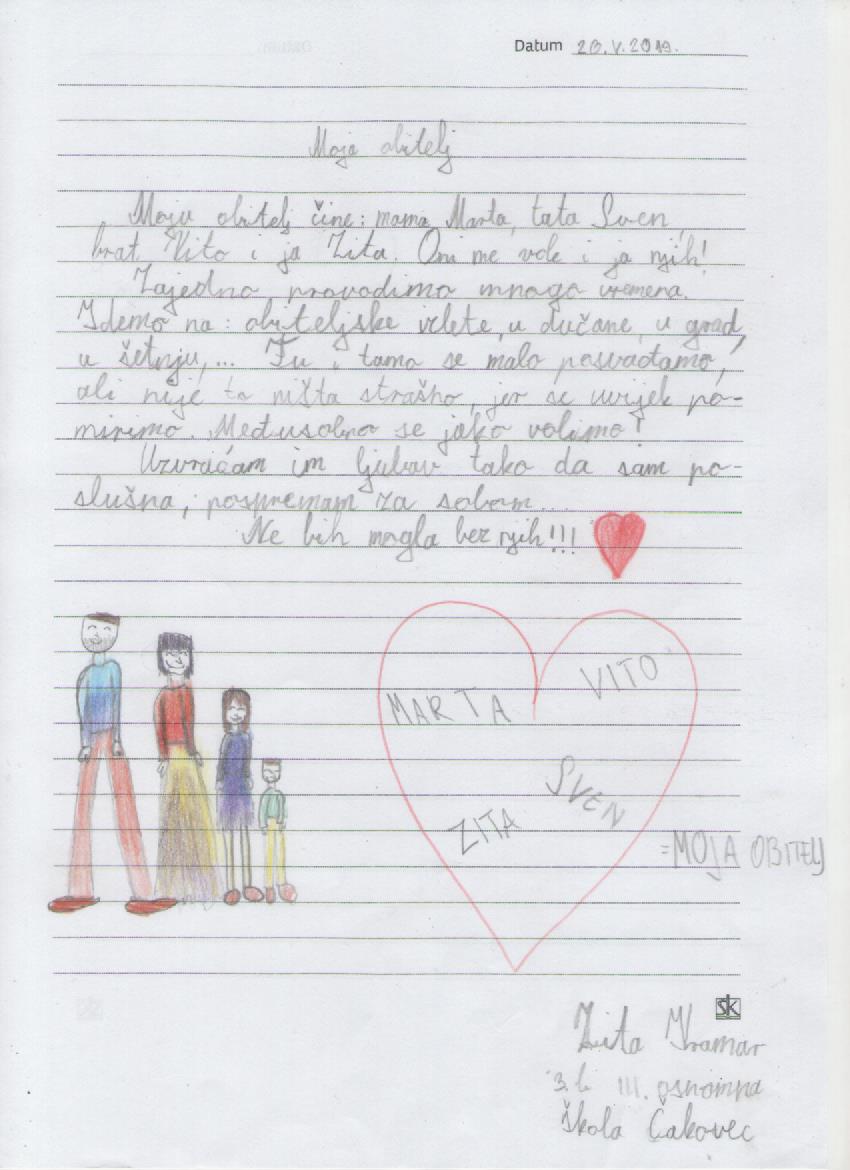 Datum 20.V.2019.
Moja obitelj
Moju obitelj čine: mama Marta, tata Sven,
brat Vito i ja Zita. Oni me vole i ja njih!
Zajedno provodimo mnogo vremena.
Idemo na: obiteljske izlete, u dućane, u grad,
u šetnju,... Tu i tamo se malo posvađamo,
ali nije to ništa strašno, jer se uvijek po-
mirimo. Međusobno se jako volimo!
Uzvraćam im ljubav tako da sam po-
slušna, pospremam za sobom...
Ne bih mogla bez njih!!!
MARTA
VITO
SVEN
ZITA
=MOJA OBITELJ
sk
Zita
3.b III. osnovna
škola Čakovec